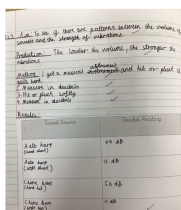 Aim: To see if there are patterns between the volume of
sounds and the strength of vibrations.
Prediction: The louder the volume, the stronger the
vibrations
Method: I get a musical instrument and hit or pluck it
quite hard
2. Measure in decibels
3. Hit or pluck softly
4. Measure in decibels
Results:
Sound Source
Decibel Reading
Auto harp
(hard pluck)
dB
Auto harp
(soft pluck)
dB
Chime bar
(hard hit)
dB
Chime bar
(soft hit)
dB